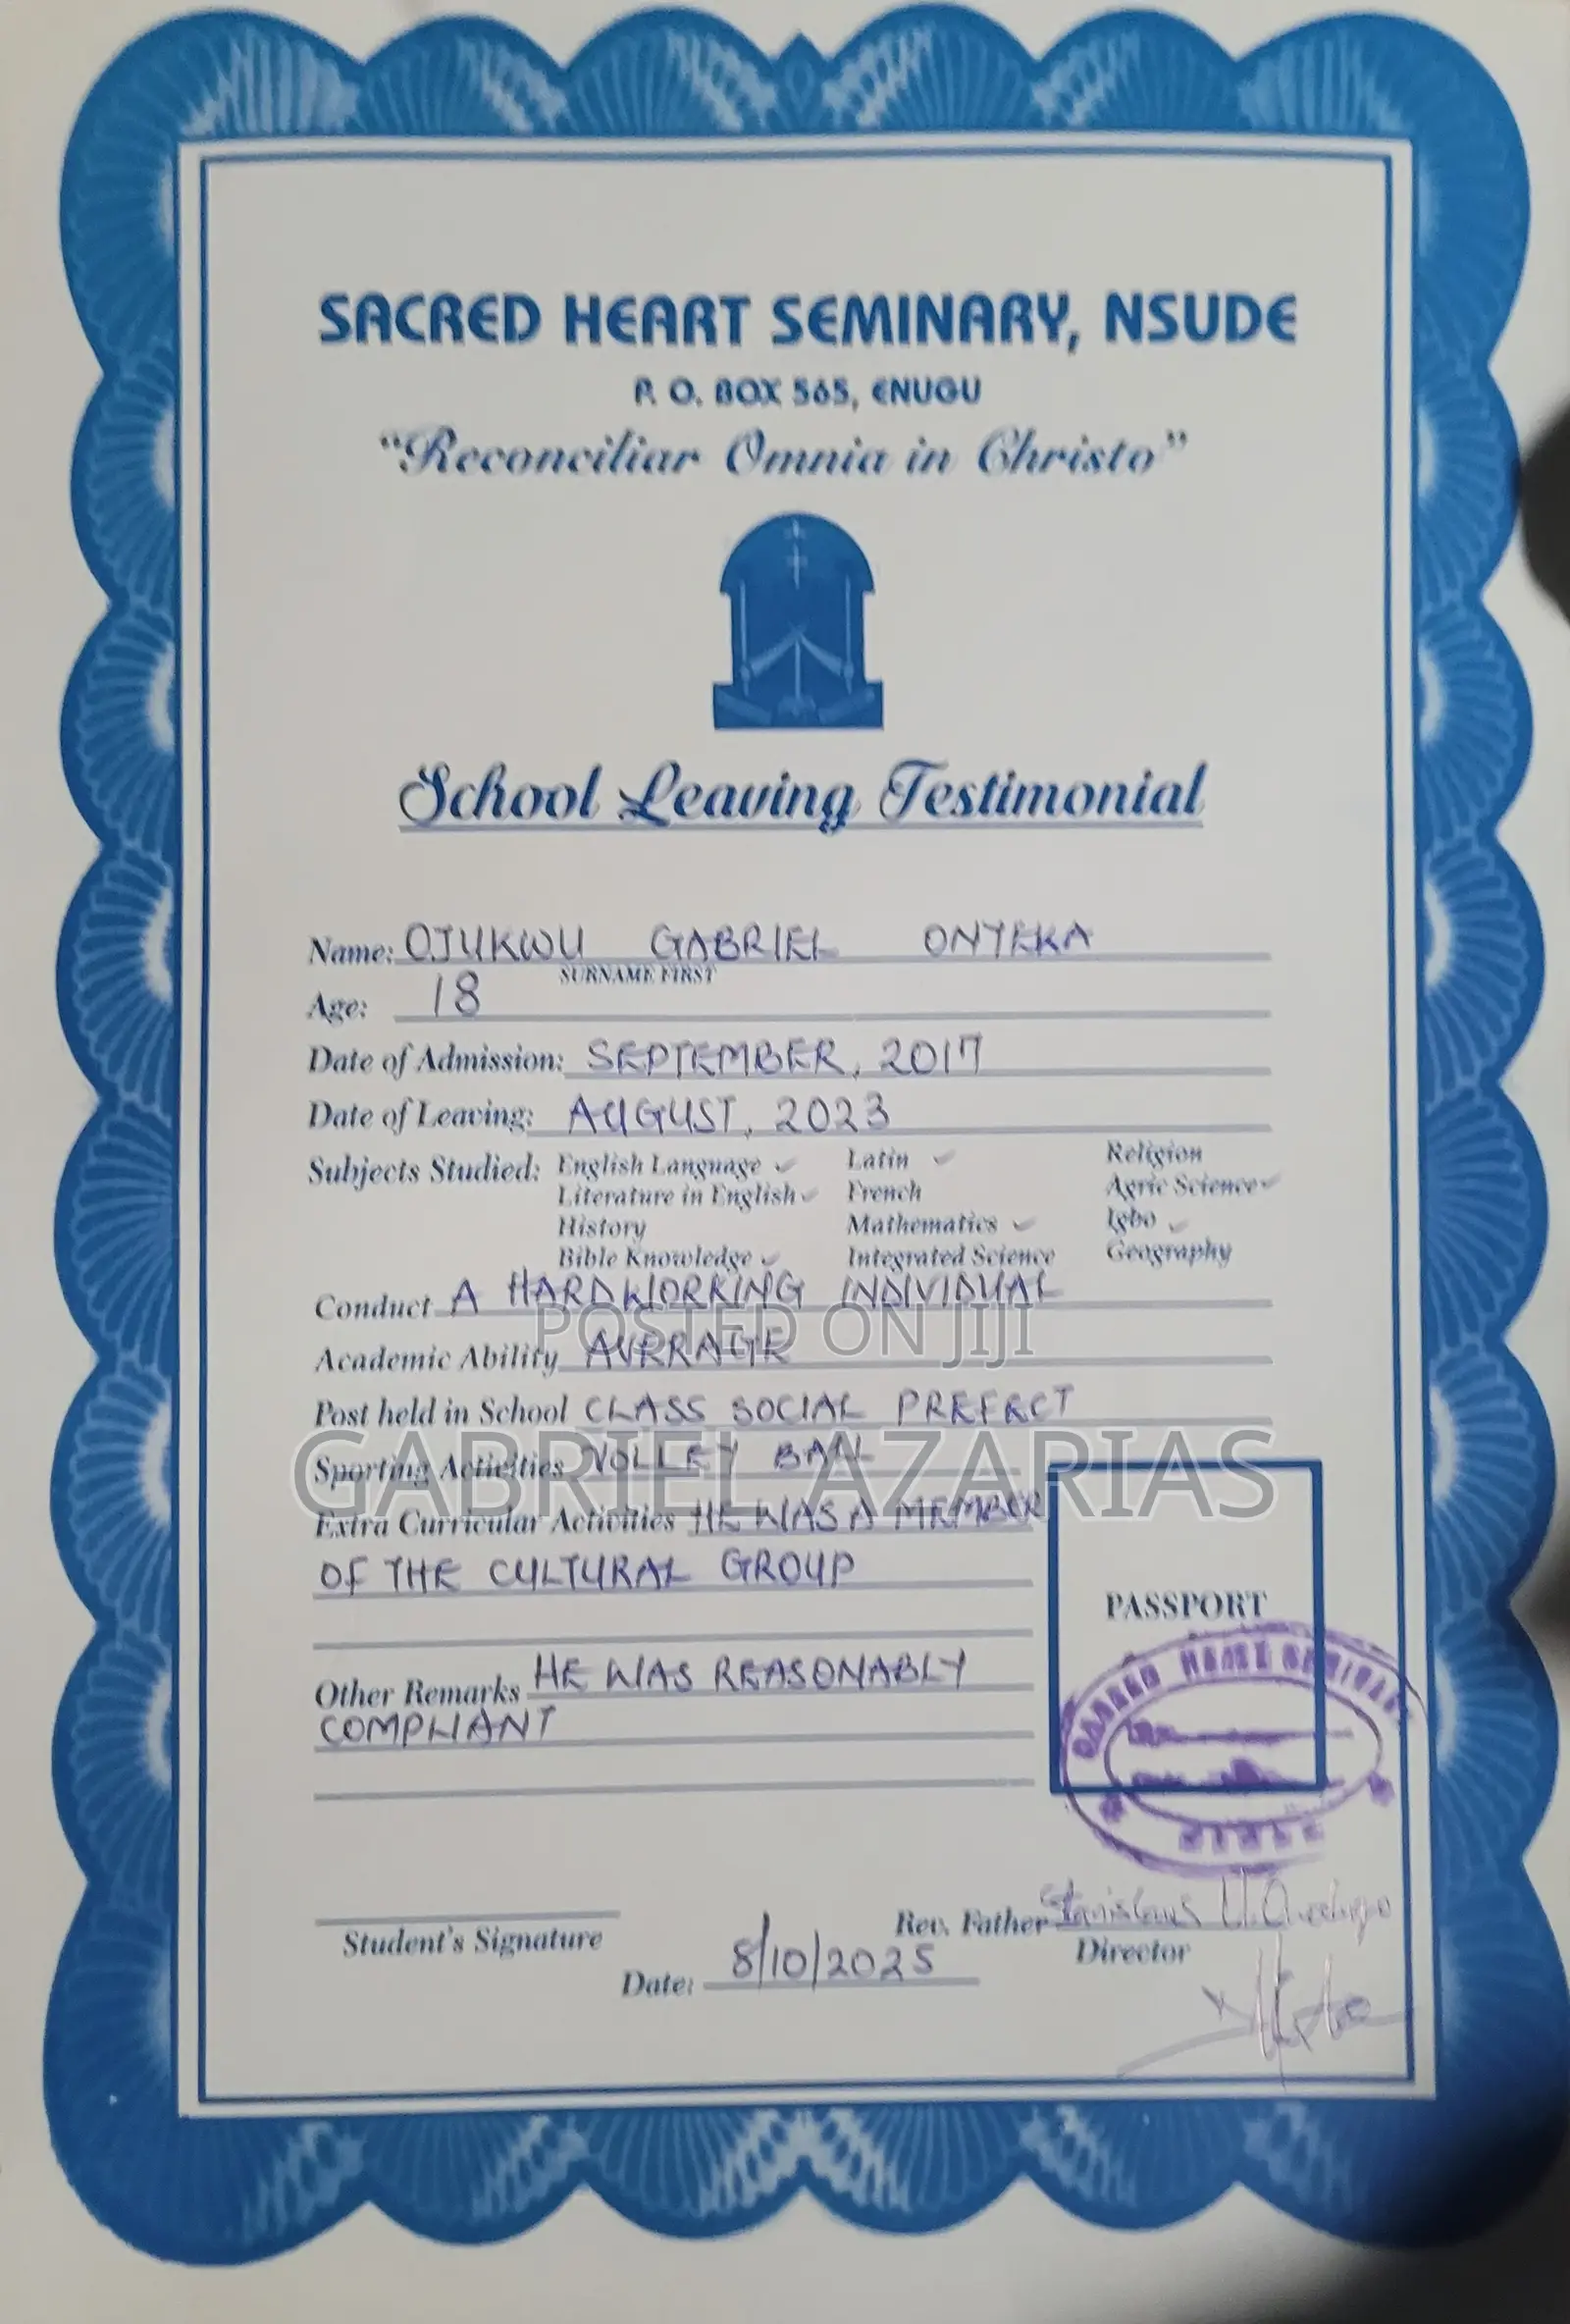 SACRED HEART SEMINARY, NSUDE
P. O. BOX 565, ENUGU
"Reconciliar Omnia in Christo"
School Leaving Testimonial
Name: OJUKWU GABRIEL ONYEKA
SURNAME FIRST
Age: 18
Date of Admission: SEPTEMBER, 2017
Date of Leaving: AUGUST, 2023
Subjects Studied: English Language ✓ Latin ✓ Religion
Literature in English ✓ French Agric Science ✓
History Mathematics ✓ Igbo ✓
Bible Knowledge ✓ Integrated Science Geography
Conduct A HARDWORKING INDIVIDUAL
POSTED ON JIJI
Academic Ability AVERAGE
Post held in School CLASS SOCIAL PREFECT
GABRIEL AZARIAS
Sporting Activities VOLLEY BALL
Extra Curricular Activities HE WAS A MEMBER
OF THE CULTURAL GROUP
PASSPORT
SACRED HEART SEMINARY
NSUDE
Other Remarks HE WAS REASONABLY
COMPLIANT
Rev. Father Stanislaus U.
Student's Signature Director
Date: 8/10/2025